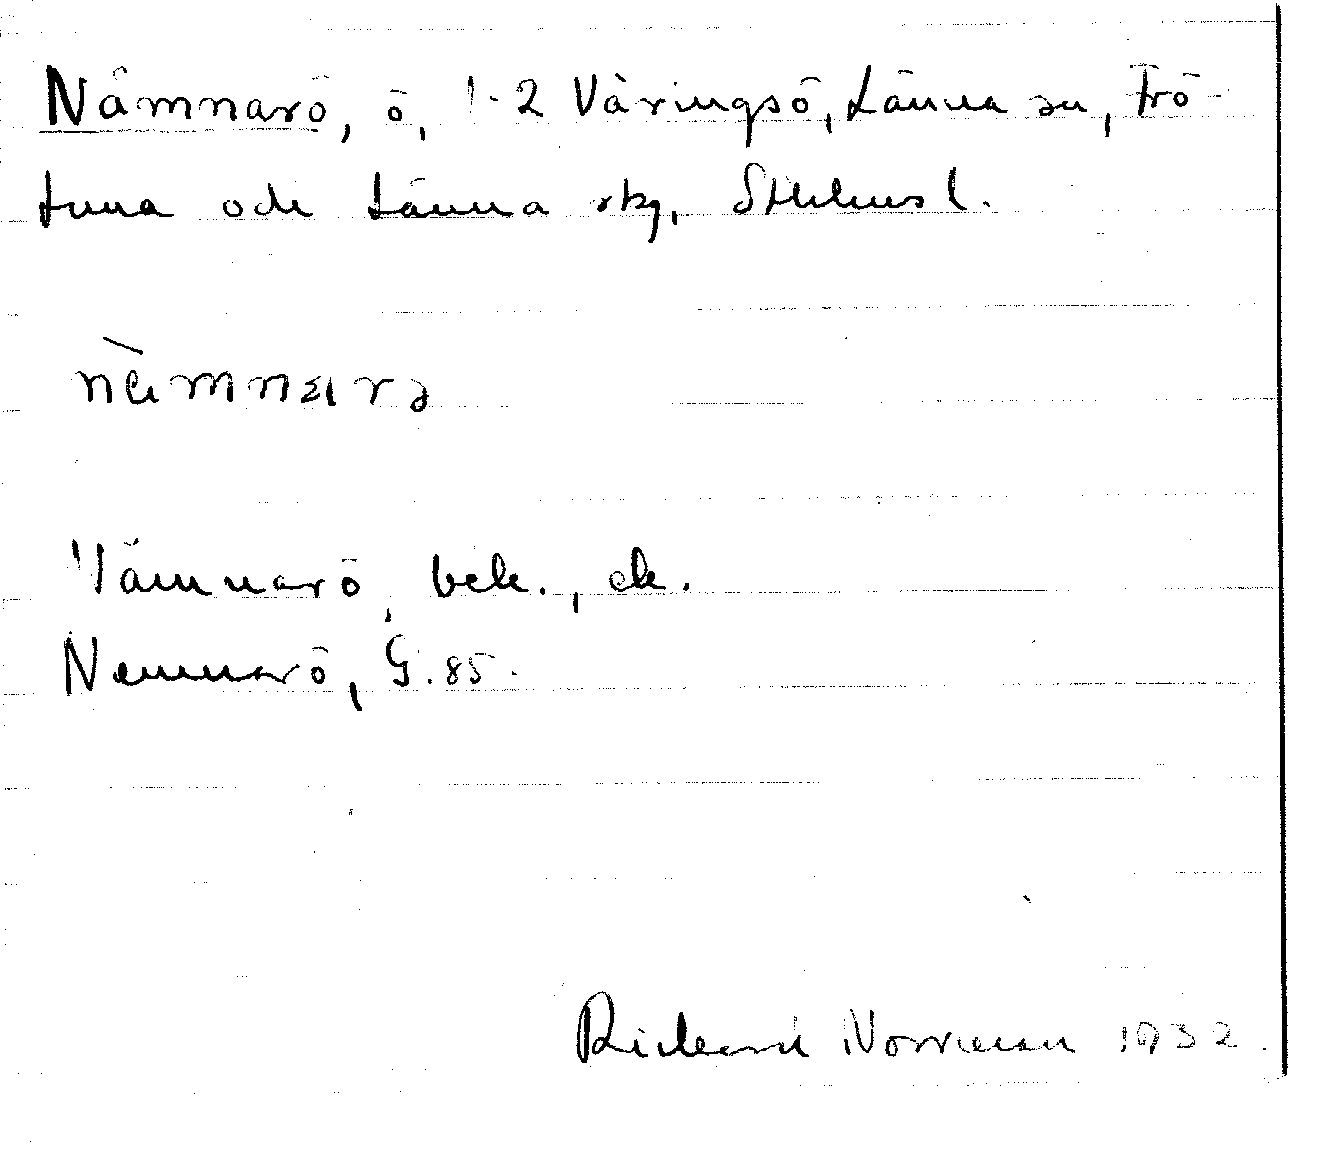 Nämnarö, ö, 1-2 Väringsö, Länna sn, Frö-
tuna och Länna skg, Sthlms l.
nämnarə
Nämnarö, bek., ek.
Nemnarö, G. 85.
Richard Norrman 1932.